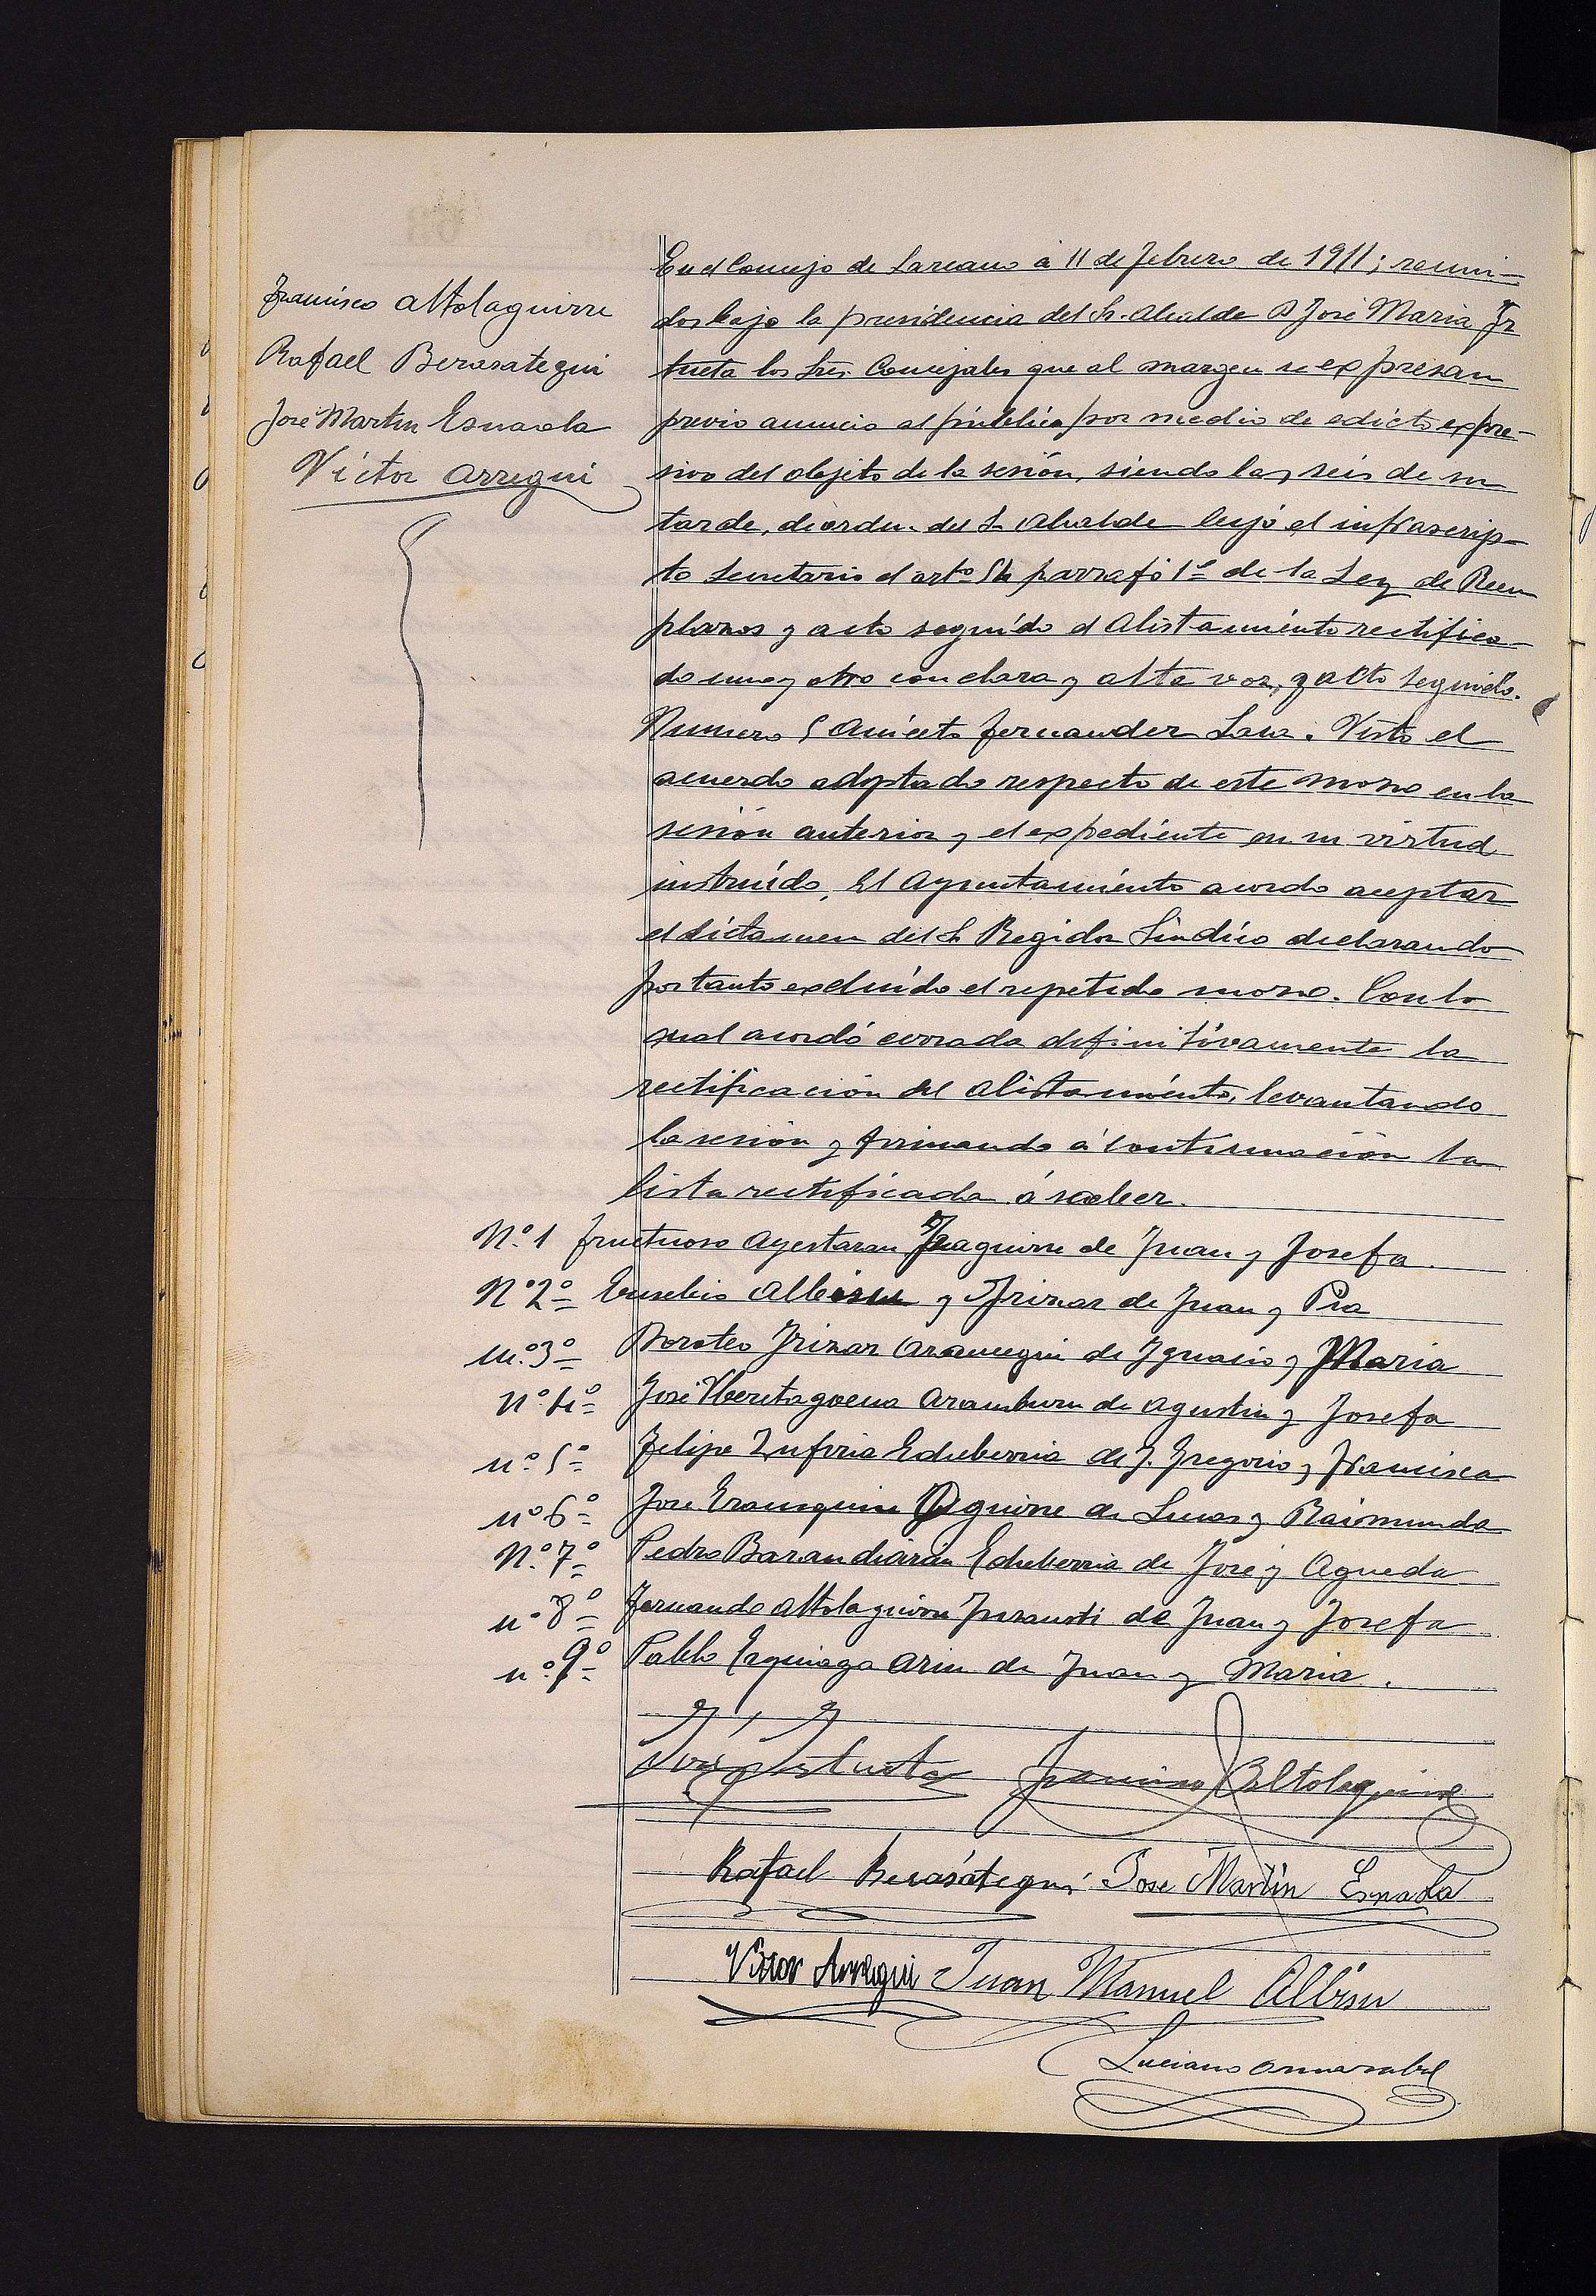 Francisco Altolaguirre
Rafael Berasategui
José Martin Esnaola
Victor Arregui
En el Concejo de Lazcano á 11 de Febrero de 1911; reuni-
dos bajo la presidencia del Sr. Alcalde D José Maria Ir
tueta los Sres. Concejales que al margen se expresan
previo anuncio al público por medio de edicto expre-
sivo del objeto de la sesión, siendo las seis de su
tarde, de orden del Sr Alcalde leyó el infrascrip-
to Secretario el arto 54 parrafo 1º de la Ley de Reem
plazos y acto seguido el Alistamiento rectifica-
do uno y otro con clara y alta voz, y acto seguido.
Numero 5 Aniceto Fernandez Lasa. Visto el
acuerdo adoptado respecto de este mozo en la
sesión anterior y el expediente en su virtud
instruído, El Ayuntamiento acordo aceptar
el dictamen del Sr Regidor Sindico declarando
por tanto excluído el repetido mozo. Con lo
cual acordó cerrada definitivamente la
rectificación del alistamiento, levantando
la sesión y firmando á continuación la
lista rectificada á saber.
Nº. 1 Fructuoso Ayestaran de Juan y Josefa
Nº 2º Eusebio Albisu y Irizar de Juan y Pia
nº. 3º Doroteo Irizar Aramegui de Ignacio y Maria
nº. 4º José Aramburu de Agustin y Josefa
nº. 5º Felipe Zufiria Echeberria de J. Gregorio y Francisca
nº 6º José de Lucas y Raimunda
Nº. 7º Pedro Barandiarán Echeberria de José y Agueda
nº 8º Fernando Altolaguirre Insausti de Juan y Josefa
nº. 9º Pablo Ezquiaga Arin de Juan y Maria.
José Mª Irtueta Francisco Altolaguirre
Rafael Berasátegui José Martin Esnaola
Vitor Arregui Juan Manuel Albisu
Luciano Ormazabal